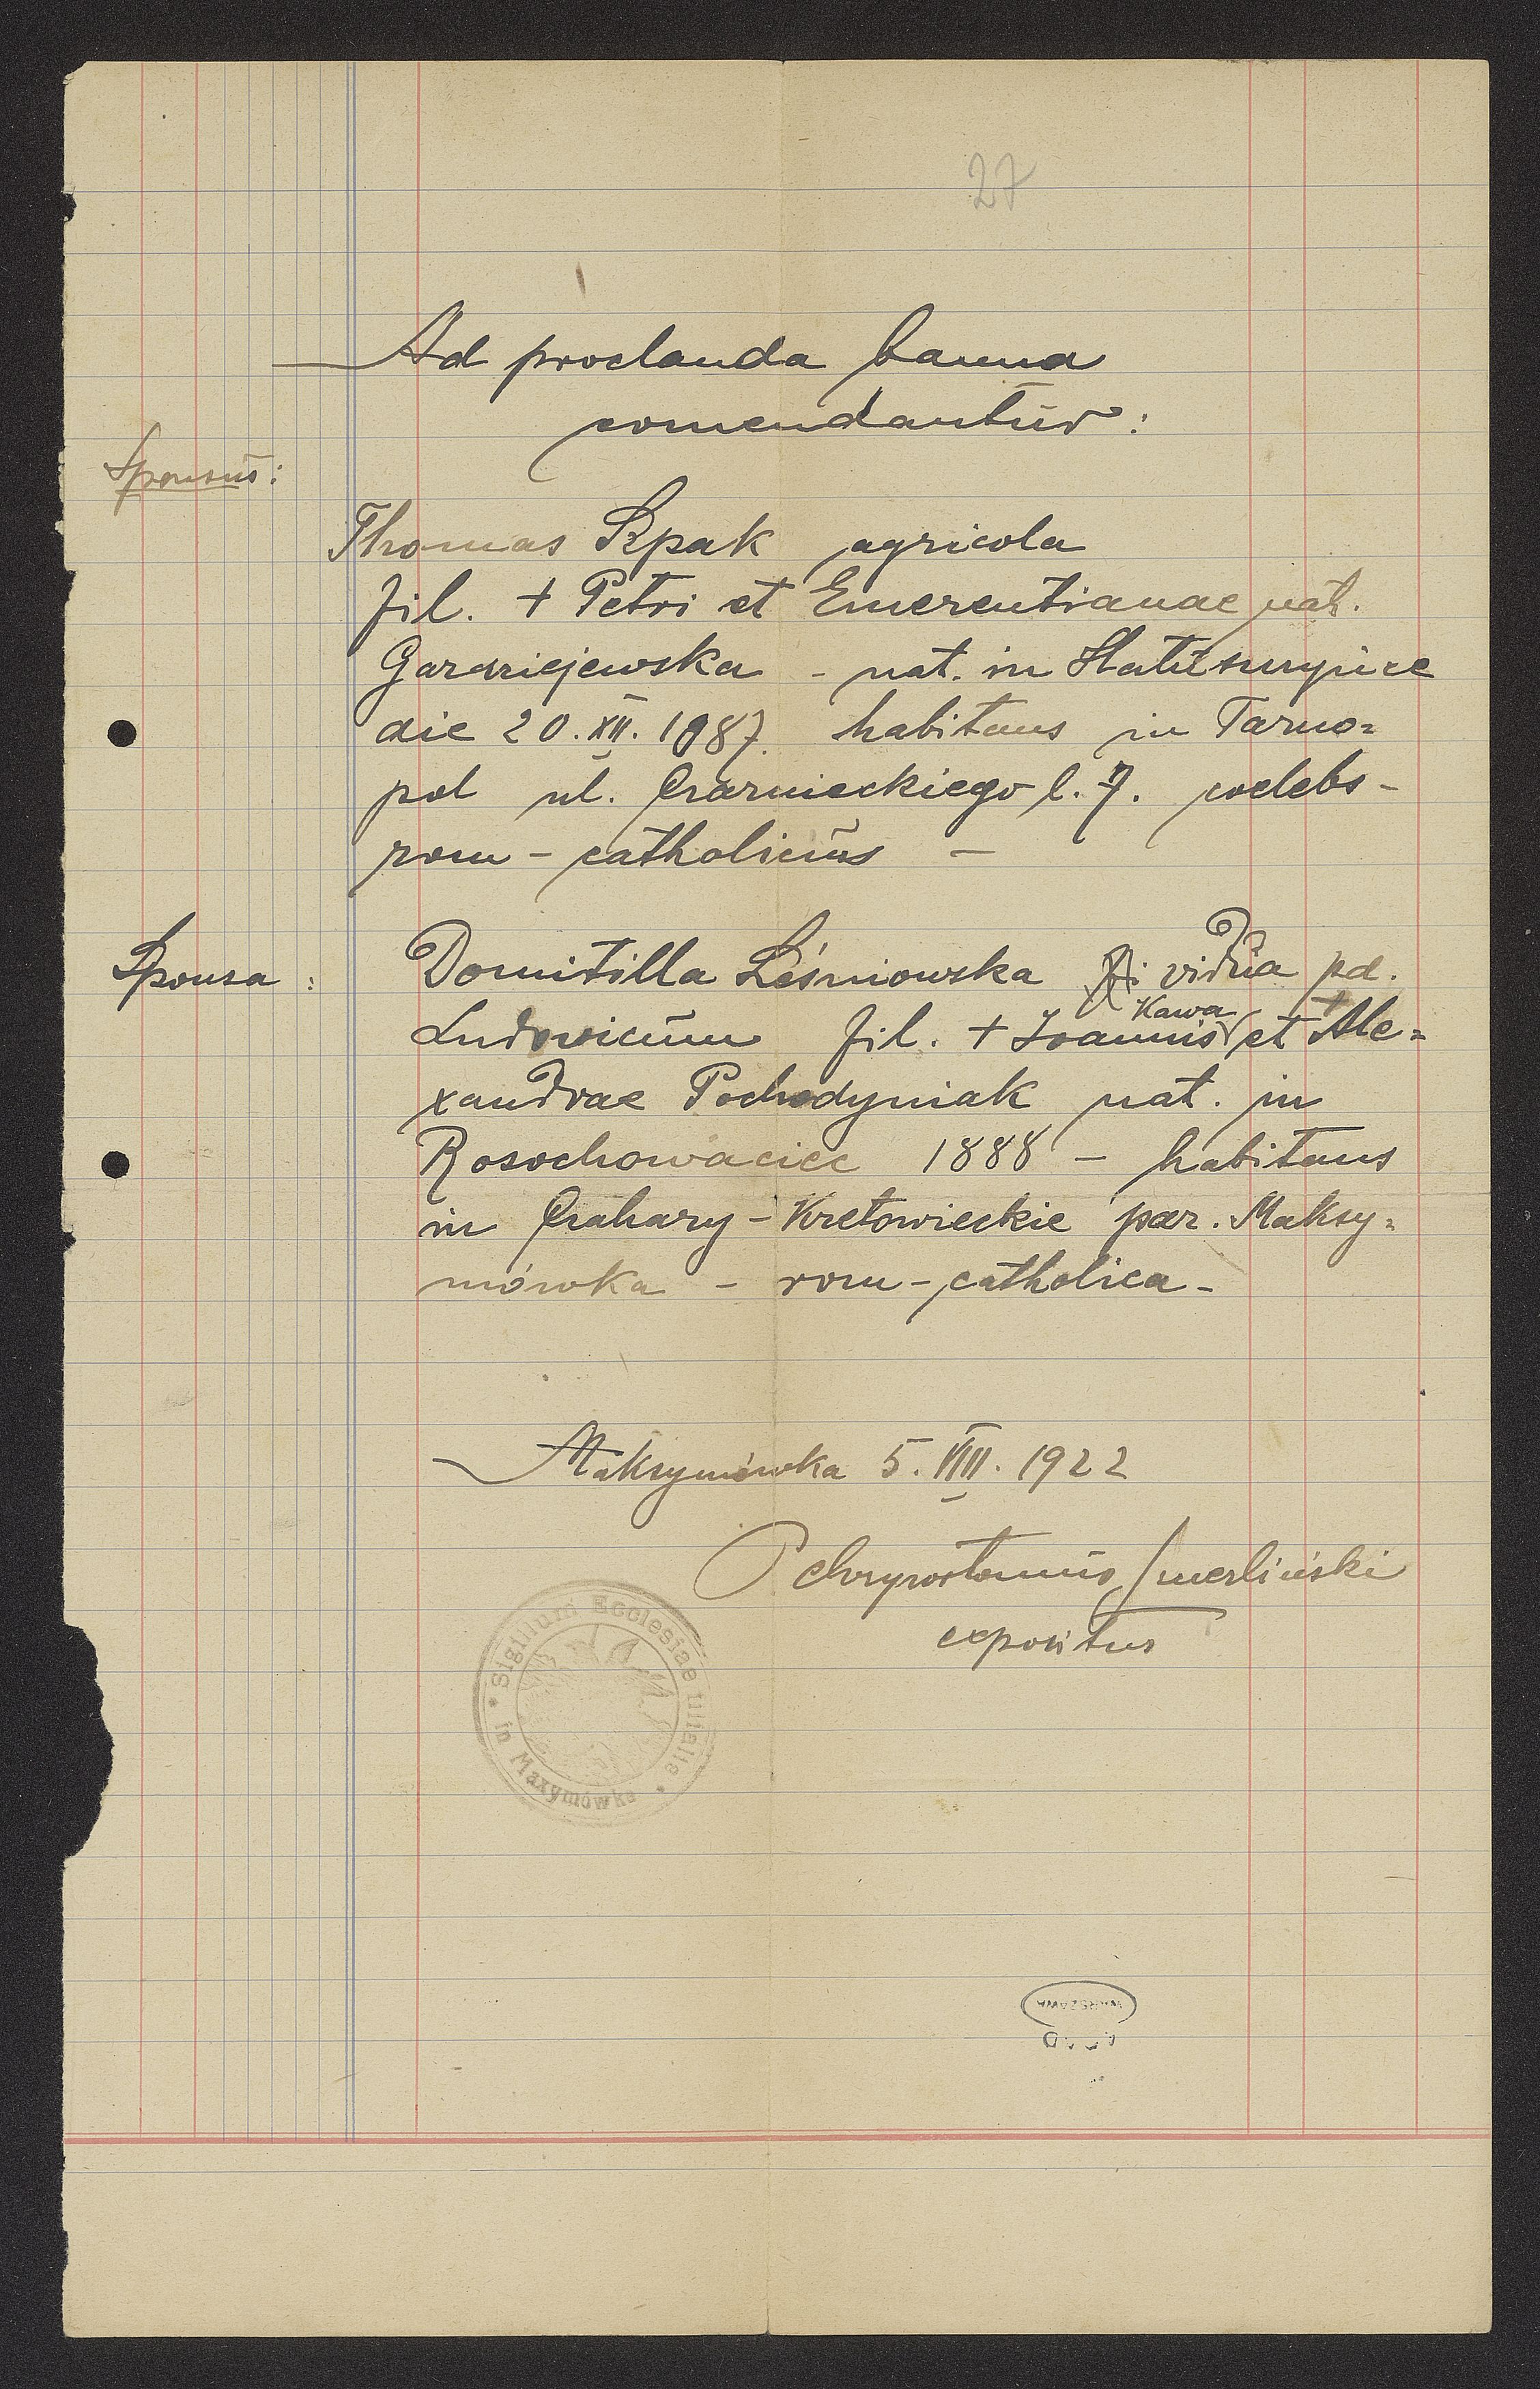 27
Ad proclanda banna
comendantur:
Sponsus:
Thomas Szpak agricola
fil. + Petri et Emerentianae nat.
nat. in
die 20. XII. 1887. habitans in Tarno=
pol ul. Czarnieckiego l. 7. coelebs -
rom - catholicus -
Sponsa:
Domitilla Leśniowska vidua pd.
Kawa
Ludovicum fil. + Joannis et + Ale=
xandrae Pochodyniak nat. in
Rosochowaciec 1888 - habitans
in Czahary - Kretowieckie par. Maksy=
mówka - rom - catholica -
Maksymówka 5. VIII. 1922
P Chryzostomus Smerliński
expositus
* Sigillum Ecclesiae filialis *
in Maxymówka
WARSZAWA
AGAD